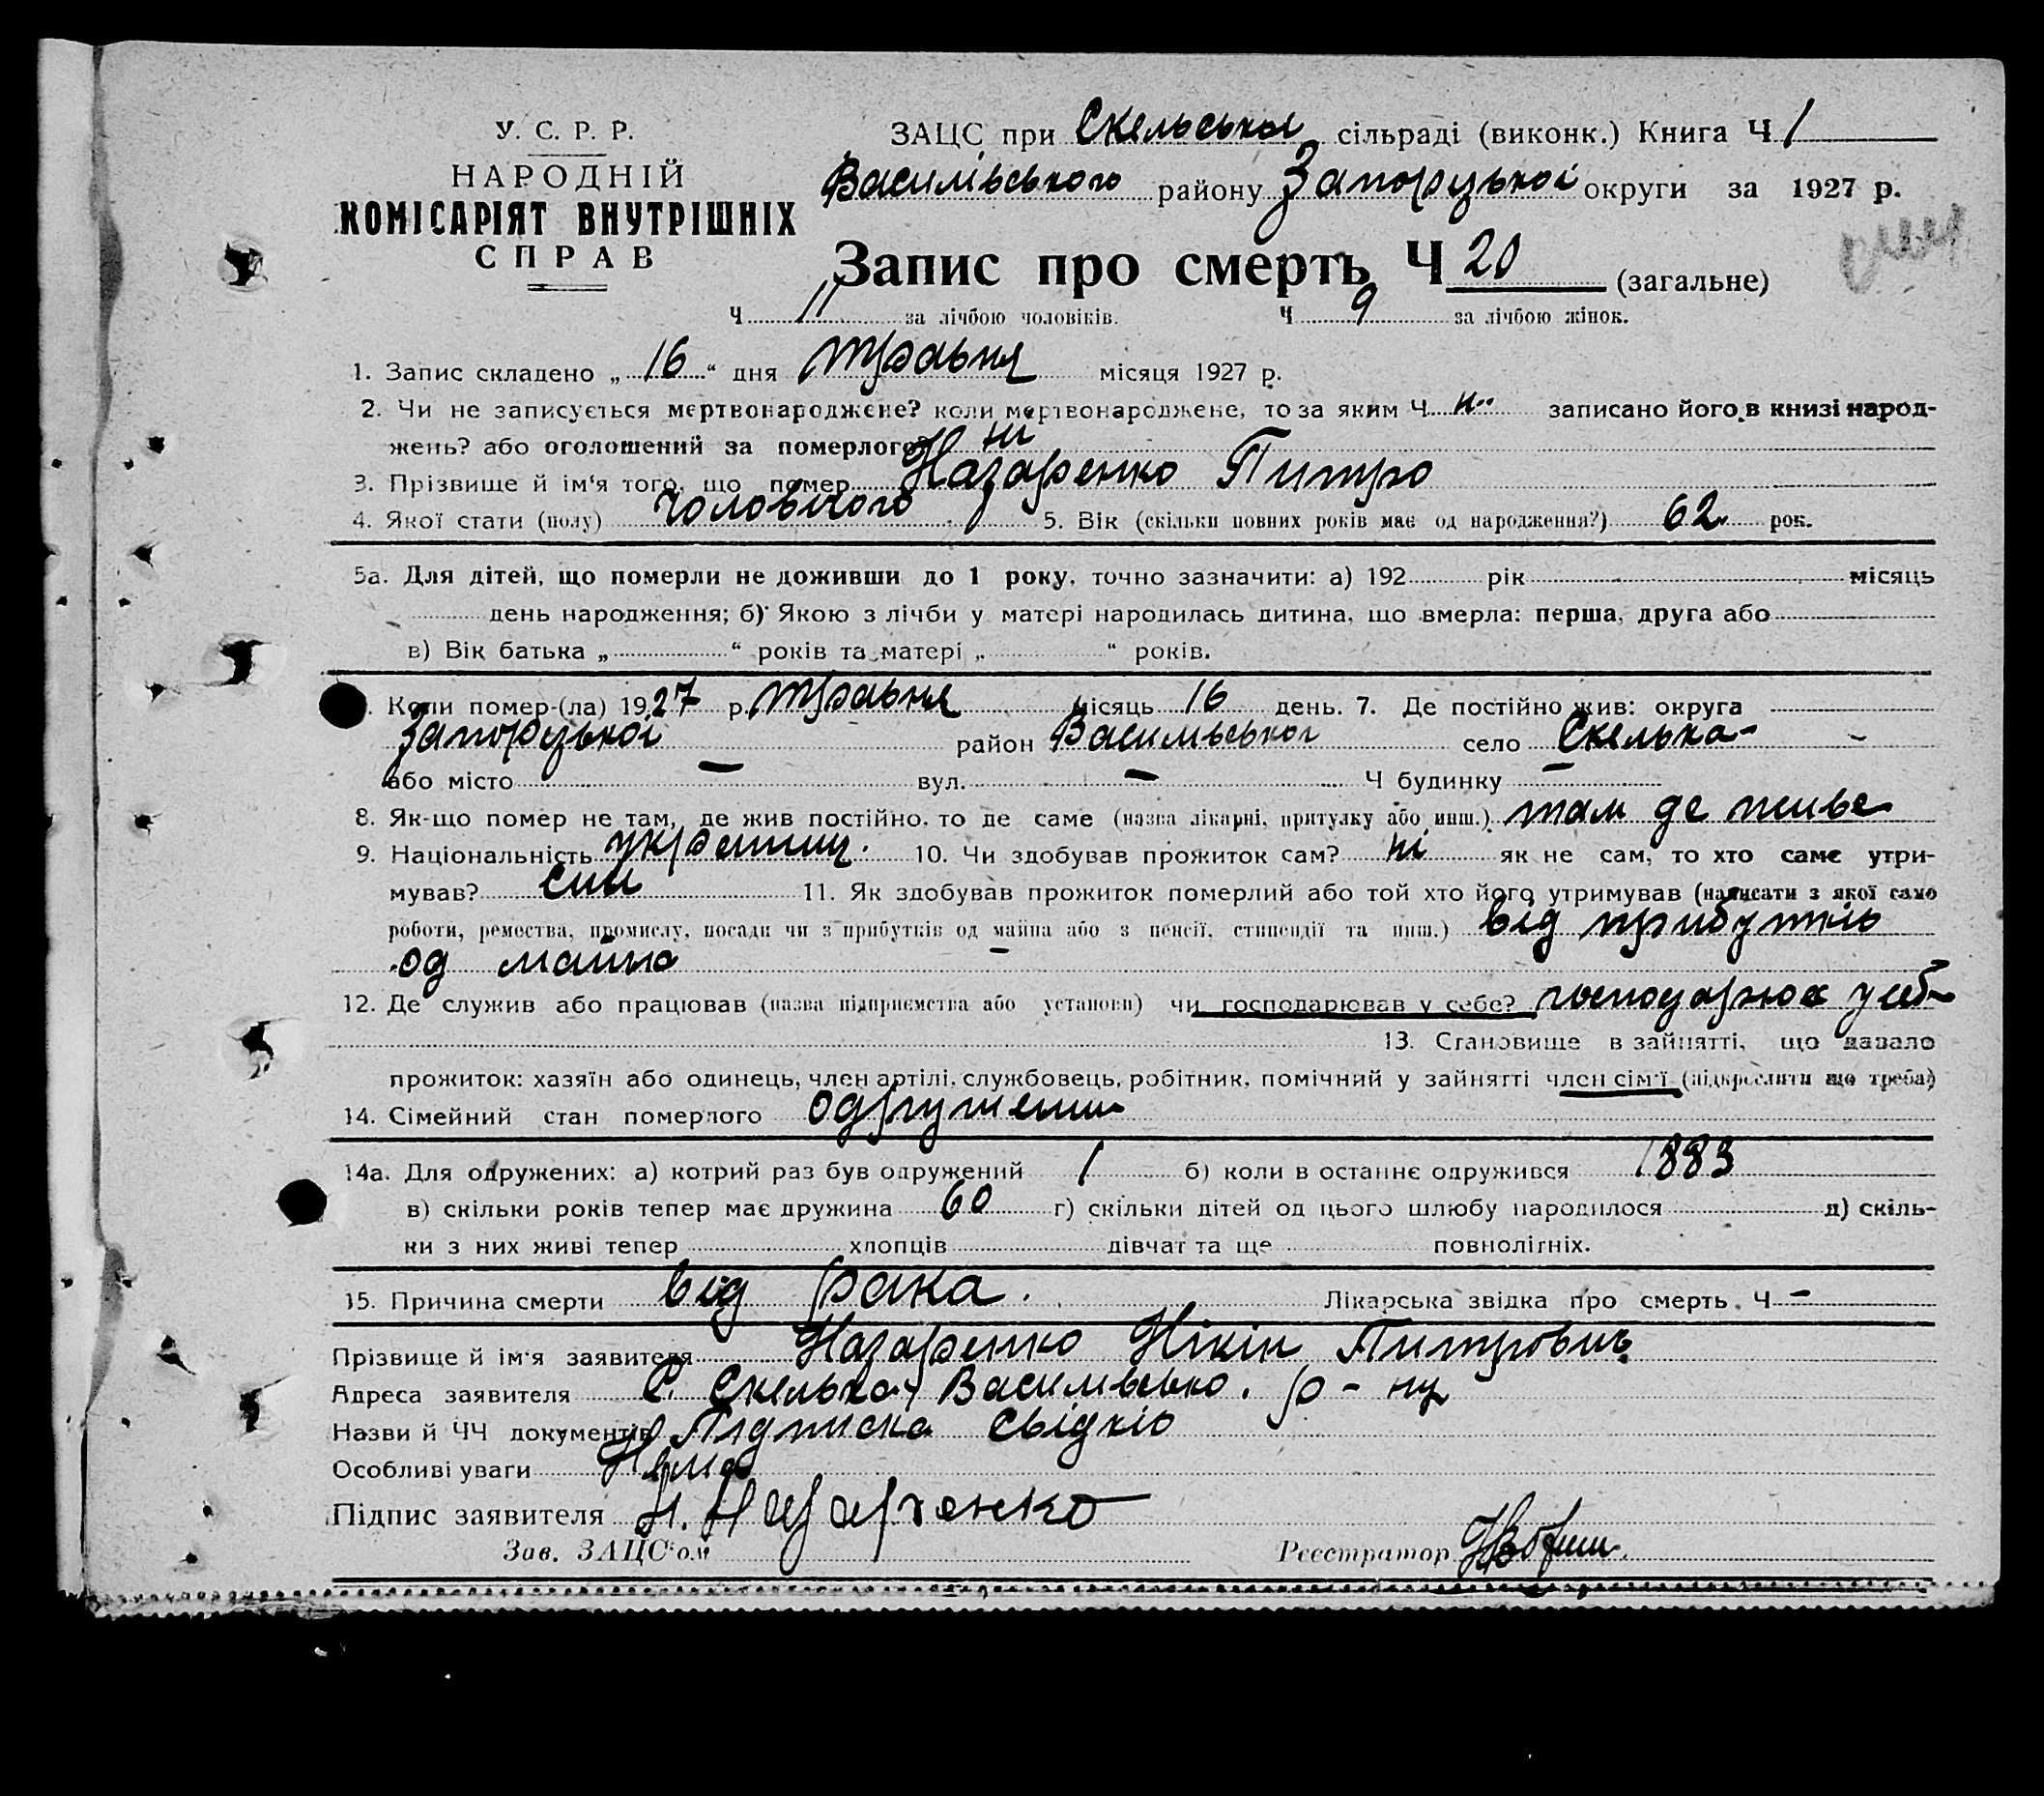 У. С. Р. Р.
НАРОДНІЙ
КОМІСАРІЯТ ВНУТРІШНІХ
СПРАВ
ЗАЦС при Скельської сільраді (виконк.) Книга Ч 1
Василівського району Запорузької округи за 1927 р.
Запис про смерть Ч 20 (загальне)
Ч 11 за лічбою чоловіків. Ч 9 за лічбою жінок.
1. Запис складено „ 16 “ дня травня місяця 1927 р.
2. Чи не записується мертвонароджене? коли мертвонароджене, то за яким Ч записано його в книзі народ-
жень? або оголошений за померлого? ні
3. Прізвище й ім‘я того, що помер Назаренко Питро
4. Якої стати (полу) чоловічого 5. Вік (скільки повних років має од народження?) 62 рок.
5а. Для дітей, що померли не доживши до 1 року, точно зазначити: а) 192 рік місяць
день народження; б) Якою з лічби у матері народилась дитина, що вмерла: перша, друга або
в) Вік батька „ “ років та матері „ “ років.
Коли помер-(ла) 1927 р. травня місяць 16 день. 7. Де постійно жив: округа
Запорузької район Василівської село Скелька -
або місто — вул. — Ч будинку —
8. Як-що помер не там, де жив постійно, то де саме (назва лікарні, притулку або инш.) там де живе
9. Національність 10. Чи здобував прожиток сам? ні як не сам, то хто саме утри-
мував? син 11. Як здобував прожиток померлий або той хто його утримував (написати з якої само
роботи, ремества, промислу, посади чи з прибутків од майна або з пенсії, стипендії та инш.) від прибутків
од майна
12. Де служив або працював (назва підприємства або установи) чи господарював у себе? господарює у себе
13. Становище в зайнятті, що давало
прожиток: хазяїн або одинець, член артілі, службовець, робітник, помічний у зайнятті член сім‘ї (підкреслити що треба)
14. Сімейний стан померлого одружений
14а. Для одружених: а) котрий раз був одружений 1 б) коли в останнє одружився 1883
в) скільки років тепер має дружина 60 г) скільки дітей од цього шлюбу народилося д) скіль-
ки з них живі тепер хлопців дівчат та ще повнолітніх.
15. Причина смерти від рака. Лікарська звідка про смерть Ч -
Прізвище й ім‘я заявителя Назаренко Нікін Питрович
Адреса заявителя С. Скелька, Василівсько. р - ну
Назви й ЧЧ документів Підписка свідків
Особливі уваги Нема
Підпис заявителя Н. Назаренко
Зав. ЗАЦС‘ом Реєстратор